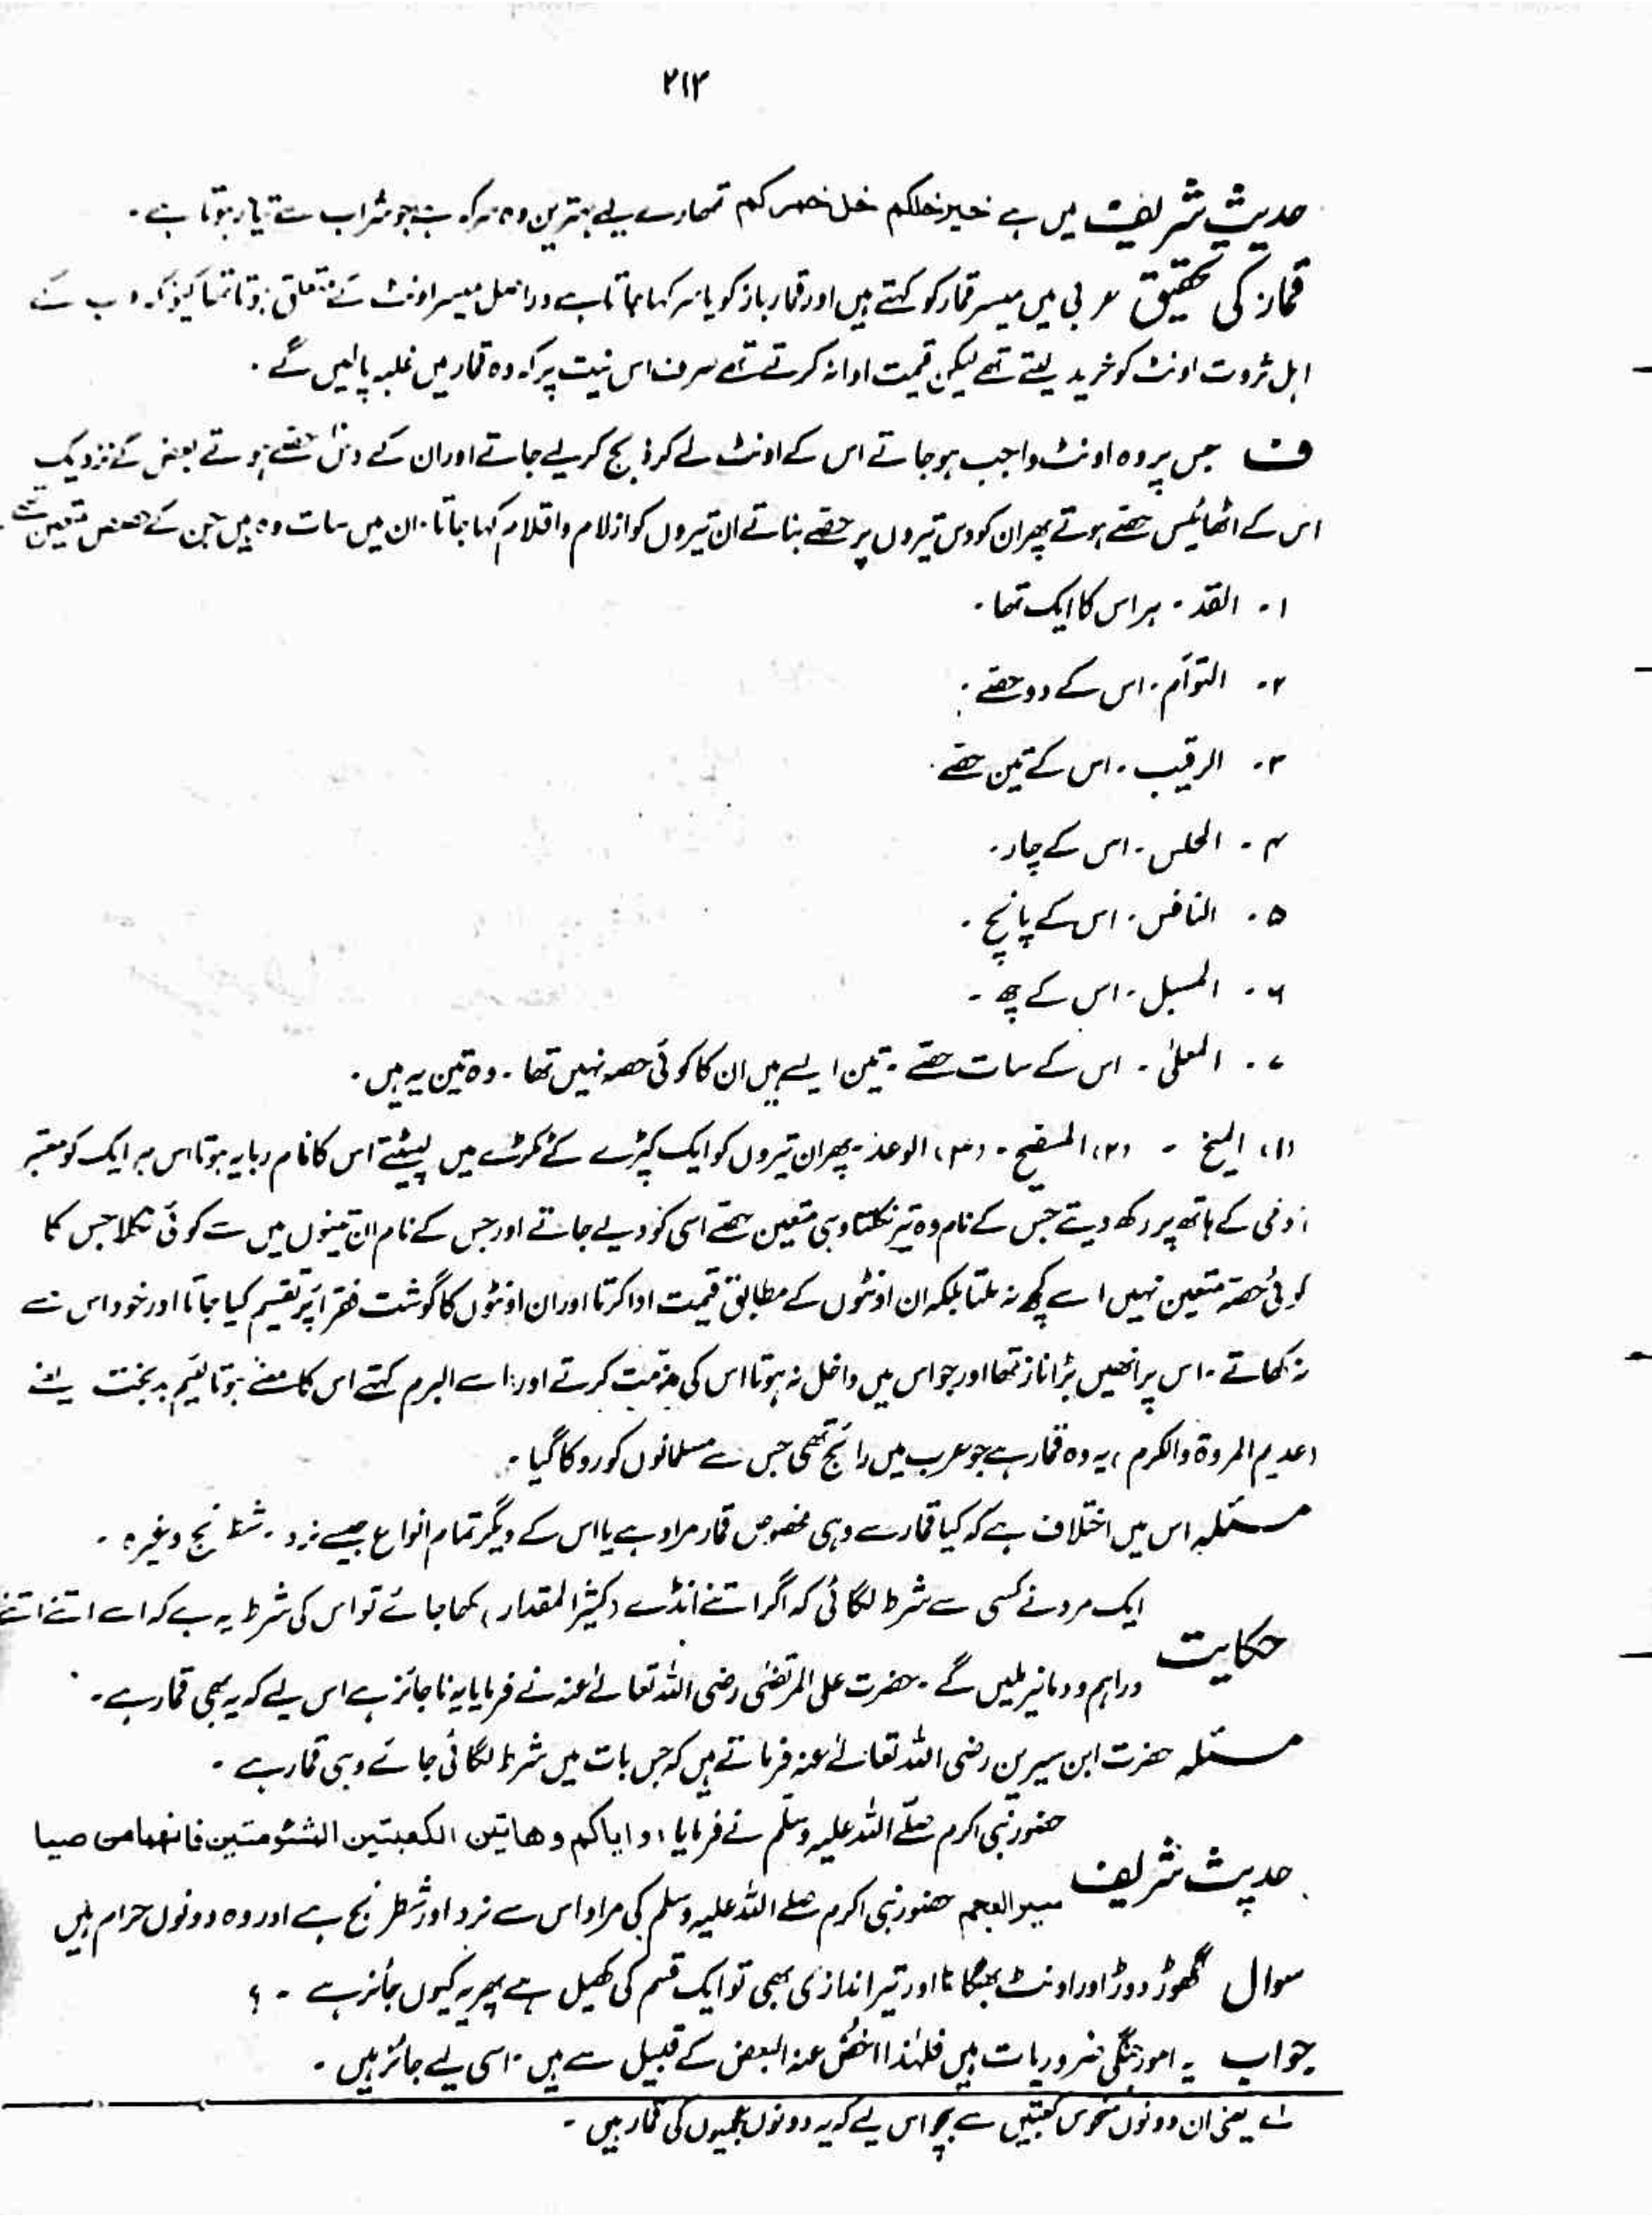 ۲۱۲
حدیث شریف میں ہے خیر خلکم خل خمرکم تمھارے لیے بہترین وہ سرکہ ہے جو شراب سے تیار ہوتا ہے۔
قمار کی تحقیق عربی میں میسر قمار کو کہتے ہیں اور قمار باز کو یاسر کہا جاتا ہے دراصل میسر اونٹ کے متعلق ہوتا تھا کیونکہ عرب کے
اہل ثروت اونٹ کو خرید لیتے تھے لیکن قیمت ادا نہ کرتے تھے صرف اس نیت پر کہ وہ قمار میں غلبہ پالیں گے۔
ف جس پر وہ اونٹ واجب ہو جاتے اس کے اونٹ لے کر ذبح کر لیے جاتے اور ان کے دس حصّے ہوتے بعض کے نزدیک
اس کے اٹھائیس حصّے ہوتے پھر ان کو دس تیروں پر حصّے بناتے ان تیروں کو ازلام و اقلام کہا جاتا۔ ان میں سات وہ ہیں جن کے حصص متعین تھے۔
۱۔ القد۔ ہر اس کا ایک تھا۔
۲۔ التوآم۔ اس کے دو حصّے۔
۳۔ الرقیب۔ اس کے تین حصّے۔
۴۔ الحلس۔ اس کے چار۔
۵۔ النافس۔ اس کے پانچ۔
۶۔ المسبل۔ اس کے چھ۔
۷۔ المعلیٰ۔ اس کے سات حصّے۔ تین ایسے ہیں ان کا کوئی حصہ نہیں تھا۔ وہ تین یہ ہیں۔
(۱) المیخ۔ (۲) المسفح۔ (۳) الوعذ۔ پھر ان تیروں کو ایک کپڑے کے ٹکڑے میں لپیٹتے اس کا نام ربابہ ہوتا اس ہر ایک کو معتبر
آدمی کے ہاتھ پر رکھ دیتے جس کے نام وہ تیر نکلتا وہی متعین حصّے اسی کو دیے جاتے اور جس کے نام ان تینوں میں سے کوئی نکلا جس کا
کوئی حصّہ متعین نہیں اسے کچھ نہ ملتا بلکہ ان اونٹوں کے مطابق قیمت ادا کرتا اور ان اونٹوں کا گوشت فقراء پر تقسیم کیا جاتا اور خود اس سے
نہ کھاتے۔ اس پر انھیں بڑا ناز تھا اور جو اس میں داخل نہ ہوتا اس کی مذمّت کرتے اور اسے البرم کہتے اس کا معنے ہوتا لئیم بدبخت یعنے
(عدیم المروۃ والکرم) یہ وہ قمار ہے جو عرب میں رائج تھی جس سے مسلمانوں کو روکا گیا۔
مسئلہ اس میں اختلاف ہے کہ کیا قمار سے وہی مخصوص قمار مراد ہے یا اس کے دیگر تمام انواع جیسے نرد۔ شطرنج وغیرہ۔
ایک مرد نے کسی سے شرط لگائی کہ اگر اتنے انڈے (کثیر المقدار) کھا جائے تو اس کی شرط یہ ہے کہ اسے اتنے اتنے
حکایت
دراہم و دنانیر ملیں گے۔ حضرت علی المرتضیٰ رضی اللہ تعالےٰ عنہ نے فرمایا یہ ناجائز ہے اس لیے کہ یہ بھی قمار ہے۔
مسئلہ حضرت ابن سیرین رضی اللہ تعالےٰ عنہ فرماتے ہیں کہ جس بات میں شرط لگائی جائے وہی قمار ہے۔
حضور نبی اکرم صلّے اللہ علیہ وسلّم نے فرمایا، و ایاکم وھاتین الکعبتین الشئومتین فانھما من صیا
حدیث شریف
میسر العجم حضور نبی اکرم صلے اللہ علیہ وسلم کی مراد اس سے نرد اور شطرنج ہے اور وہ دونوں حرام ہیں
سوال گھوڑ دوڑ اور اونٹ بھگانا اور تیر اندازی بھی تو ایک قسم کی کھیل ہے پھر یہ کیوں جائز ہے۔؟
جواب یہ امور جنگی ضروریات ہیں فلہٰذا خصّ عنہ البعض کے قبیل سے ہیں۔ اسی لیے جائز ہیں۔
لے یعنی ان دونوں منحوس کعبتیں سے بچو اس لیے کہ یہ دونوں عجمیوں کی قمار ہیں۔